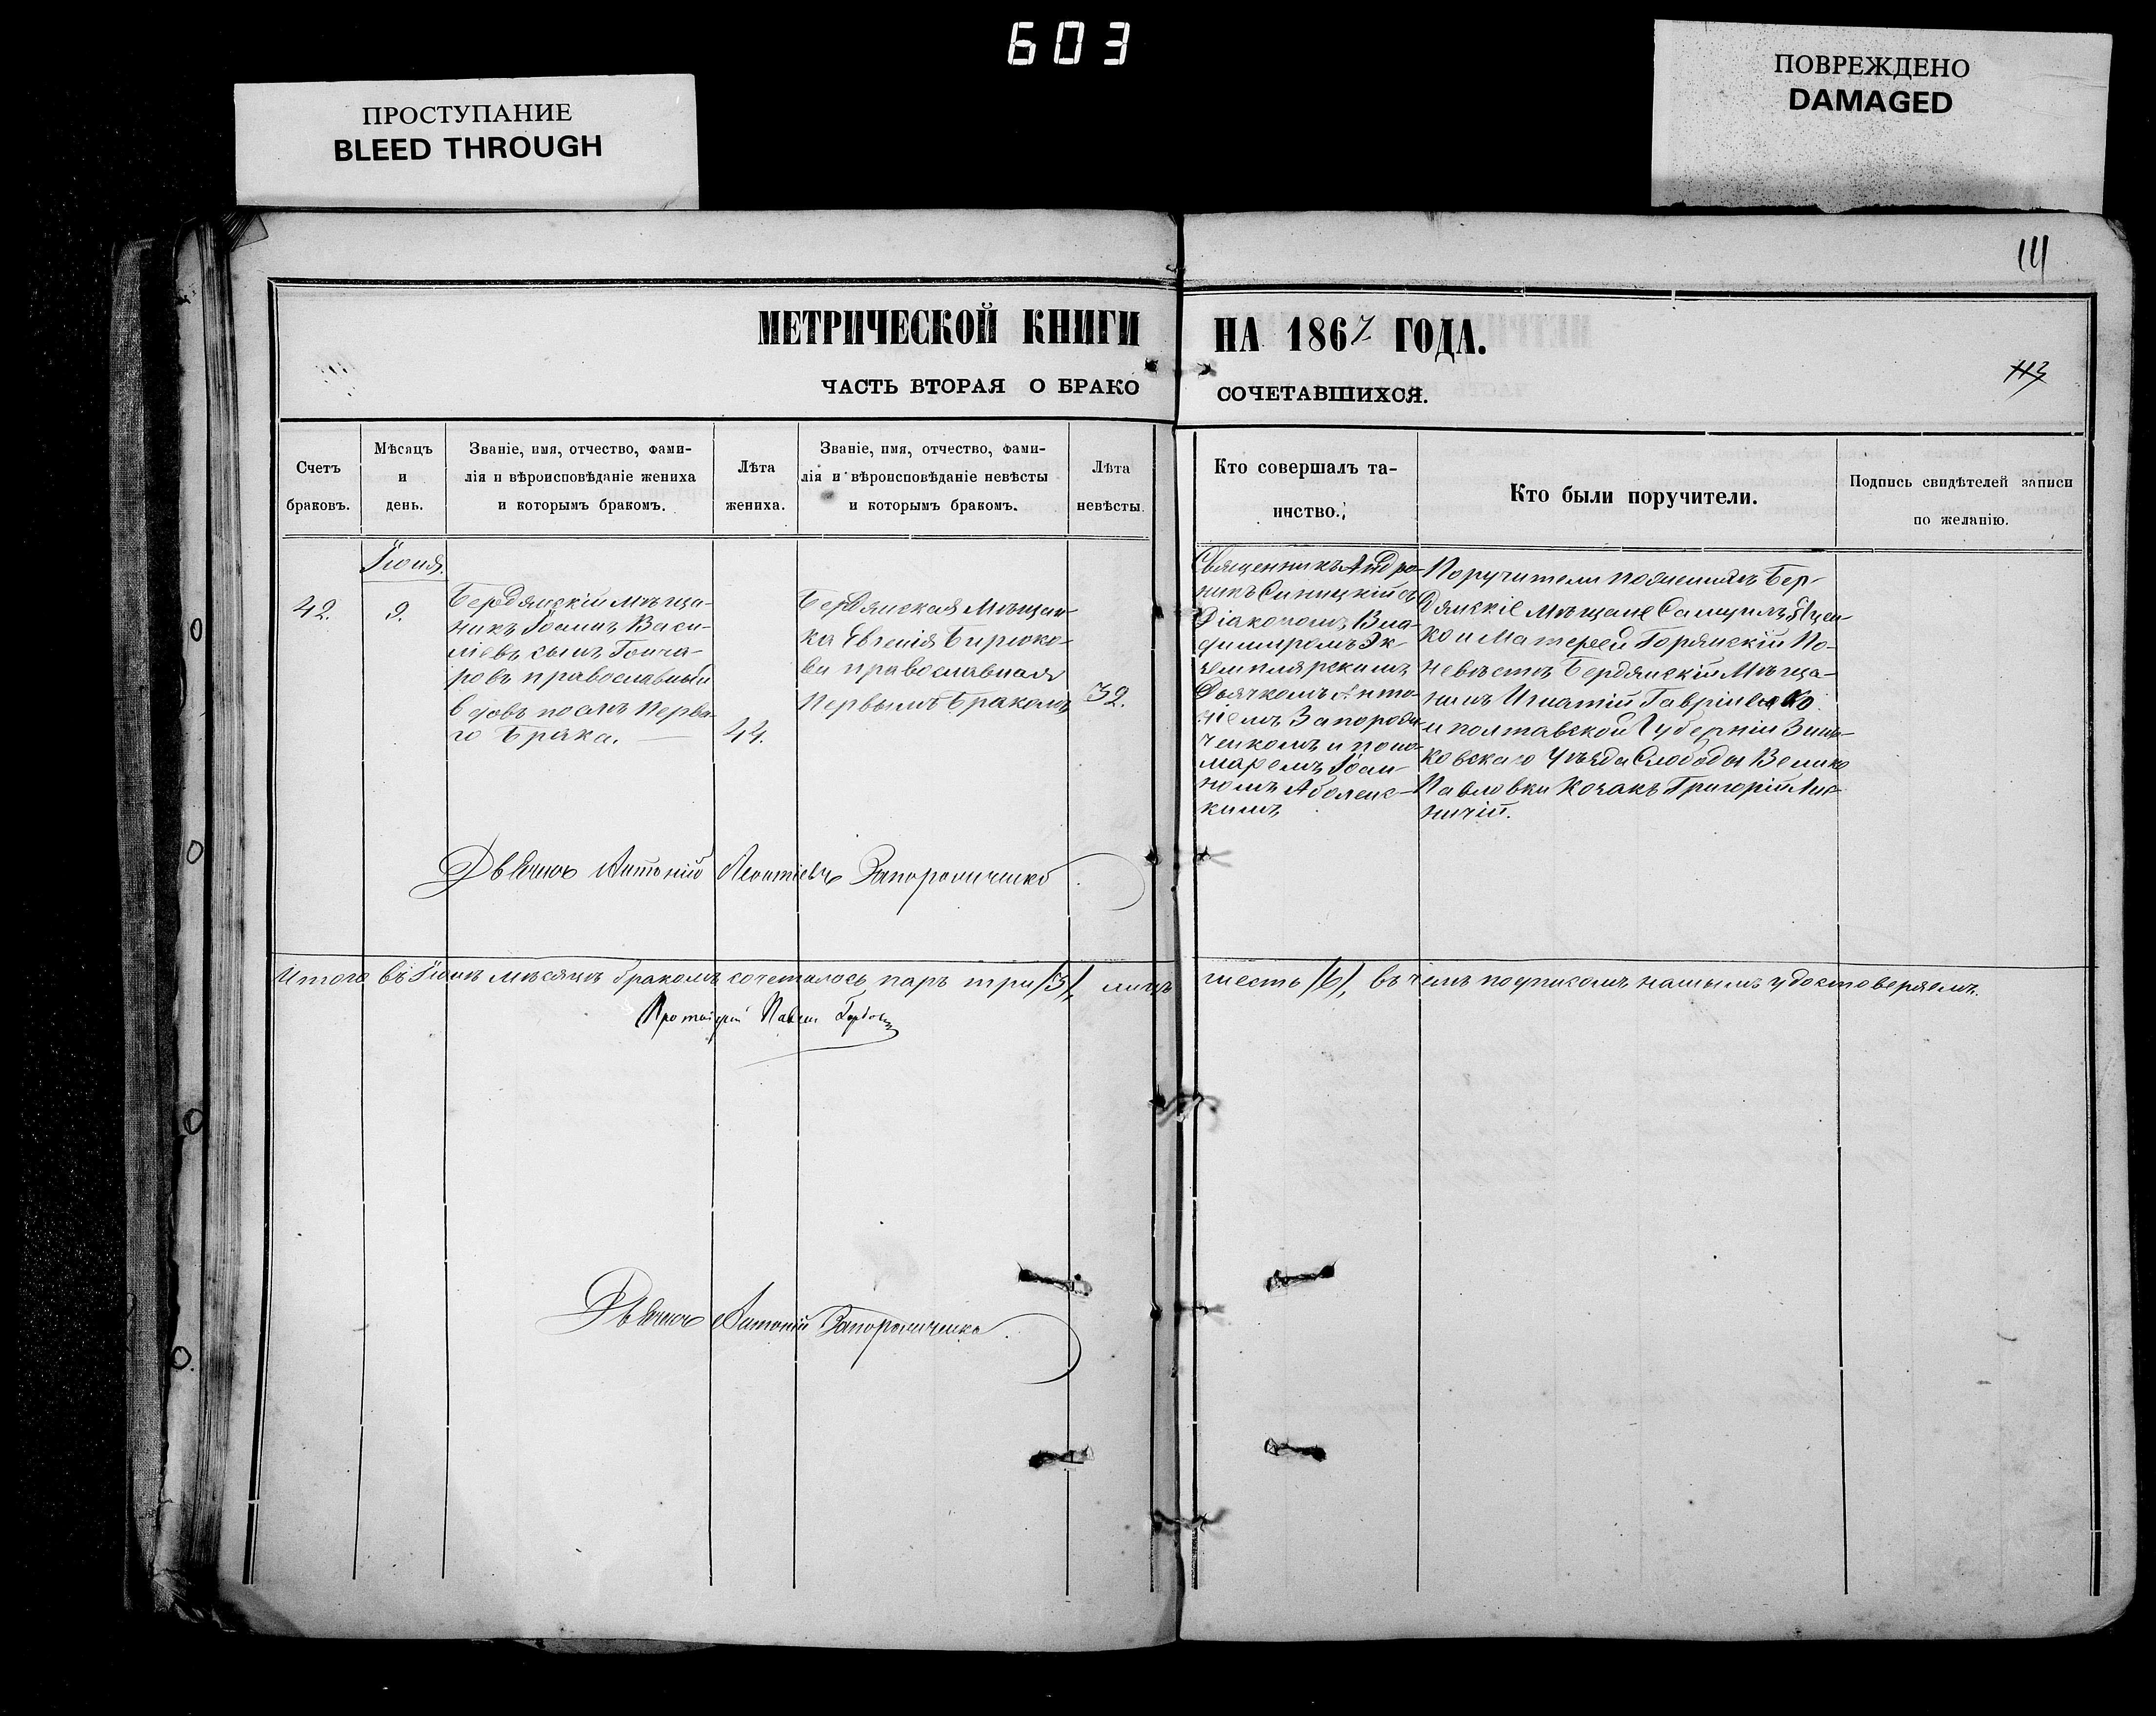 603
ПРОСТУПАНИЕ
BLEED THROUGH
ПОВРЕЖДЕНО
DAMAGED
111
МЕТРИЧЕСКОЙ КНИГИ НА 1867 ГОДА.
113
ЧАСТЬ ВТОРАЯ О БРАКОСОЧЕТАВШИХСЯ.
Счетъ
браковъ.
Мѣсяцъ
и
день.
Званіе, имя, отчество, фами-
лія и вѣроисповѣданіе жениха
и которымъ бракомъ.
Лѣта
жениха.
Званіе, имя, отчество, фами-
лія и вѣроисповѣданіе невѣсты
и которымъ бракомъ.
Лѣта
невѣсты.
Кто совершалъ та-
инство.
Кто были поручители.
Подпись свидѣтелей записи
по желанію.
Іюня.
42.
9.
Бердянскій мѣща-
нинъ Іоаннъ Васи-
ліевъ сынъ Гонча-
ровъ православный
вдовъ послѣ перва-
го брака.
44.
Бердянская Мѣщан-
ка Евгенія Бирюко-
ва православная
Первымъ бракомъ
32.
Священникъ Андро-
никъ Синицкій съ
Діакономъ Вла-
димиромъ Эк-
земплярскимъ
Дьячкомъ Анто-
ніемъ Запорож-
ченкомъ и поно-
маремъ Іоан-
номъ Аболенс-
кимъ
Поручители по женихѣ Бер-
дянскіе мѣщане Самуилъ
ко и Матфей Горянскій По-
невѣстѣ Бердянскій Мѣща-
нинъ Игнатій Гавріиленко
и полтавской Губерніи Зинь-
ковскаго Уѣзда Слободы Велико
Павловки Козакъ Григорій
ничій.
Дьячекъ Антоній Леонтіевъ Запорожченко
Итого въ Іюнѣ мѣсяцѣ бракомъ сочеталось паръ три /3/, лицъ шесть /6/, въ чемъ подписомъ нашымъ удостоверяемъ.
Протоіерей Павелъ
Дьячекъ Антоній Запорожченко